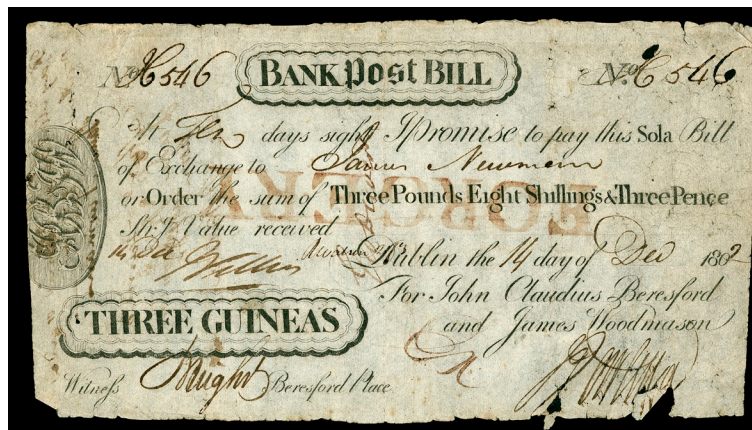 No. 546 BANK Post BILL No. 546
At Ten days sight I promise to pay this Sola Bill
of Exchange to James Newmann
or Order the sum of Three Pounds Eight Shillings & Three Pence
FORGERY
Str.g Value received
Dublin the 14 day of Dec 1802
For John Claudius Beresford
THREE GUINEAS and James Woodmason
Witness Beresford Place